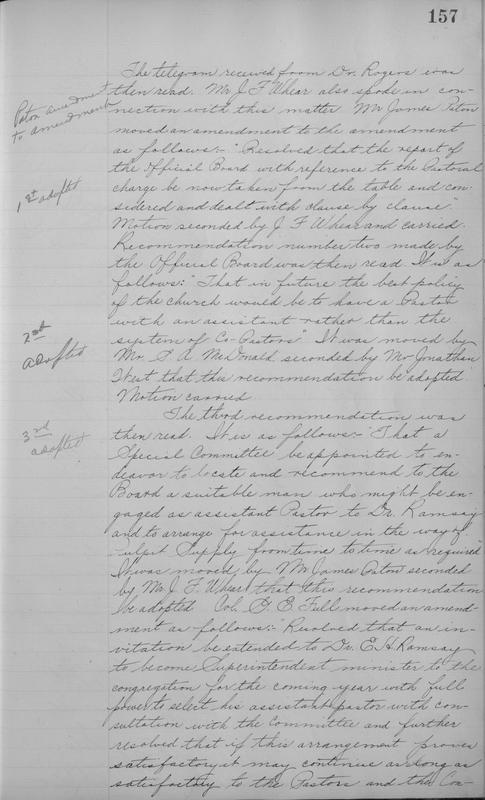 157
The telegram received from Dr. Rogers was
then read. Mr J F Whear also spoke in con-
Paton amendment
to amendment
nection with this matter Mr James Paton
moved an amendment to the amendment
as follows:- "Resolved that the report of
the Official Board with reference to the Pastoral
1st adopted
charge be now taken from the table and con-
sidered and dealt with clause by clause".
Motion seconded by J. F Whear and carried.
Recommendation number two made by
the Official Board was then read. It is as
follows: "That in future the best policy
of the church would be to have a Pastor
2nd
adopted
with an assistant rather than the
system of Co-Pastors" It was moved by
Mr. S. A. McDonald seconded by Mr Jonathan
West that this recommendation be adopted.
Motion carried
3rd
adopted
The third recommendation was
then read. It is as follows:- "That a
Special Committee be appointed to en-
deavor to locate and recommend to the
Board a suitable man who might be en-
gaged as assistant Pastor to Dr. Ramsay
and to arrange for assistance in the way of
Pulpit Supply from time to time as required"
It was moved by Mr James Paton seconded
by Mr J. F. Whear that this recommendation
be adopted Col. G. E. Full moved an amend-
ment as follows:- "Resolved that an in-
vitation be extended to Dr. E. H. Ramsay
to become Superintendent minister to the
congregation for the coming year with full
power to select his assistant pastor with con-
sultation with the Committee and further
resolved that if this arrangement proves
satisfactory it may continue as long as
satisfactory to the Pastors and the Con-